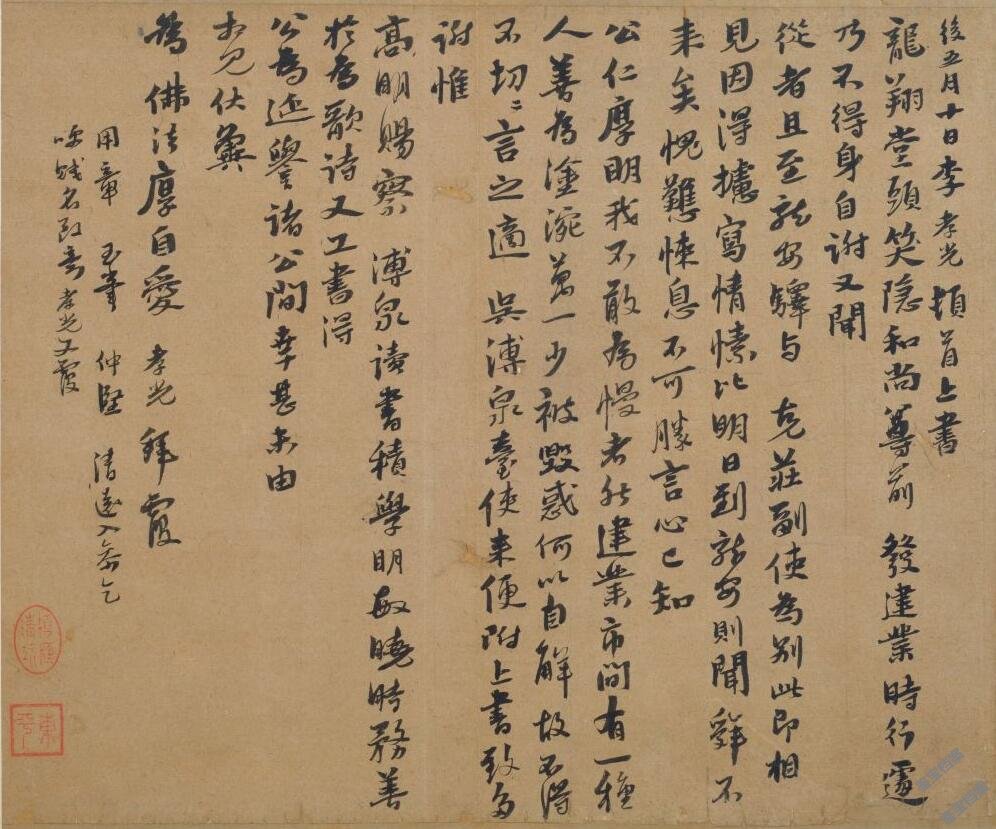 後五月十日李孝光頓首上書
龍翔堂頭笑隱和尚尊前 發建業時行遽
乃不得身自謝又聞
從者且至龍安驛與 克莊副使為別此即相
見因得攄寫情愫比明日到龍安則聞辭不
来矣愧難悚息不可勝言心已知
公仁厚明我不敢為慢者然建業市間有一種
人善為塗涴萬一少被毀惑何以自解故不得
不切〻言之適 吳溥泉臺使来便附上書致多
謝惟
高明賜察 溥泉讀書積學明敏曉時務善
於為歌詩又工書得
公為延譽諸公間幸甚未由
相見伏冀
為佛法厚自愛 孝光拜覆
用章 玉章 仲堅 清遠 乞
賤名致意孝光又覆